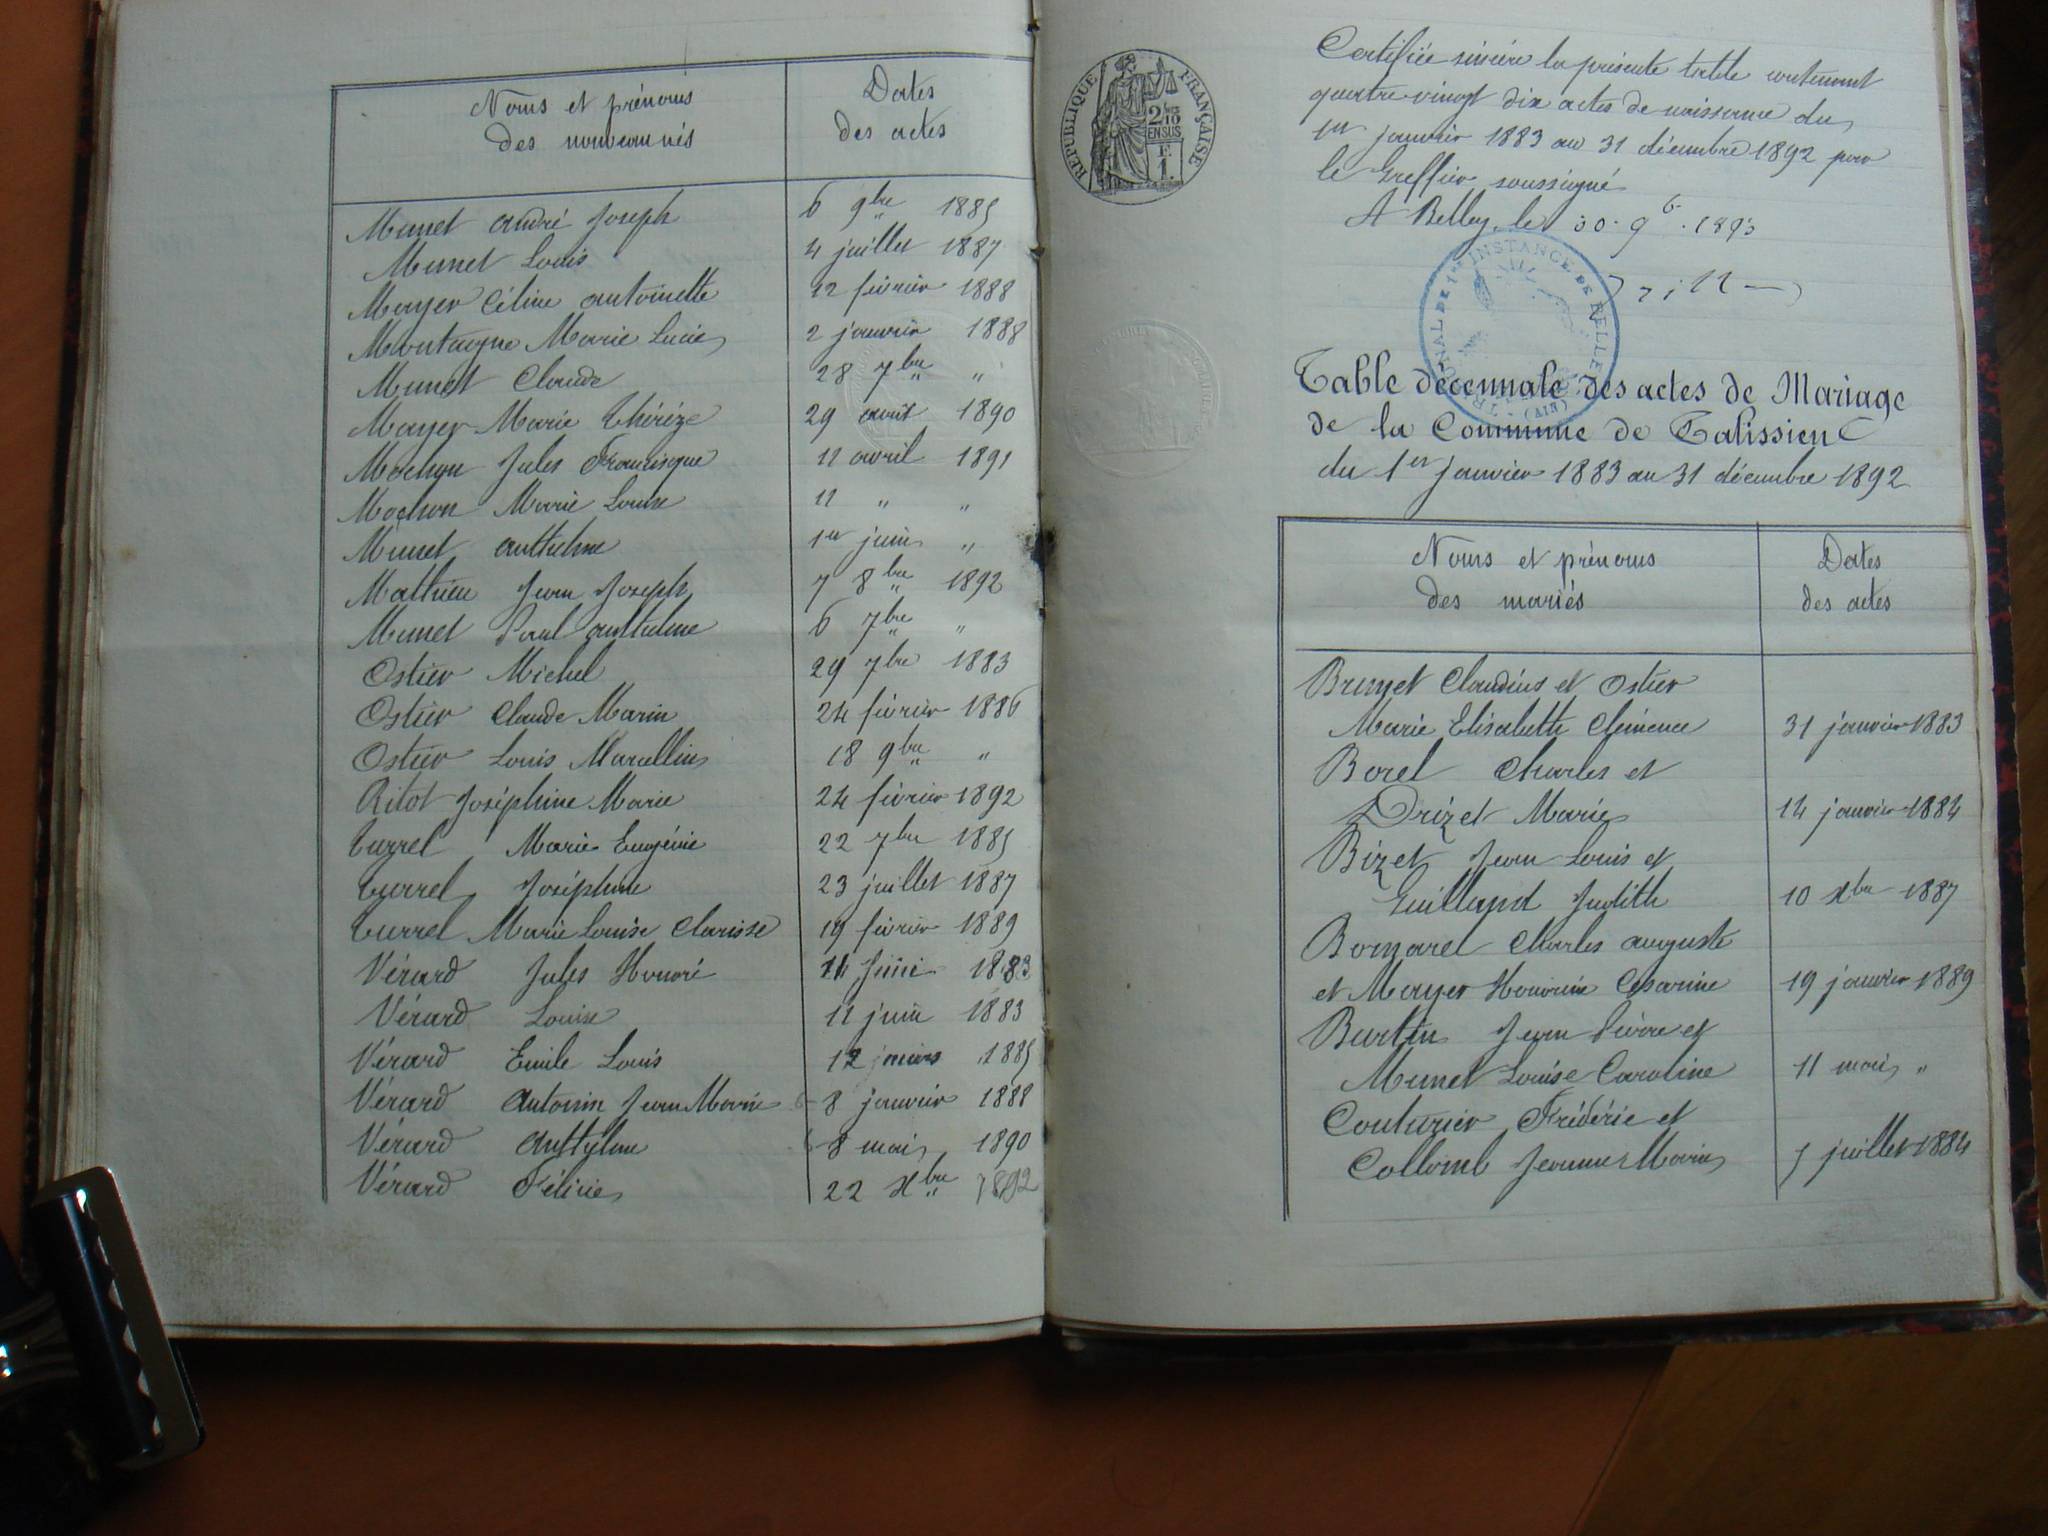 Noms et prénoms
des nouveau nés
Dates
des actes
Munet André Joseph 6 9bre 1885
Munet Louis 4 juillet 1887
Mayer Céline Antoinette 12 février 1888
Montagne Marie Lucie 2 janvier 1888
Munet Claude 28 7bre "
Mayer Marie Thérèze 29 août 1890
Mochon Jules Francisque 11 avril 1891
Mochon Marie Louise 11 " "
Munet Anthelme 1er juin "
Mathieu Jean Joseph 7 8bre 1892
Munet Paul Anthelme 6 7bre "
Ostier Michel 29 7bre 1883
Ostier Claude Marin 24 février 1886
Ostier Louis Marcellin 18 9bre "
Ritot Joséphine Marie 24 février 1892
Turrel Marie Eugénie 22 7bre 1885
Turrel Joséphine 23 juillet 1887
Turrel Marie Louise Clarisse 19 février 1889
Vérard Jules Honoré 11 juin 1883
Vérard Louise 11 juin 1883
Vérard Emile Louis 12 1885
Vérard Antonin Jean Marie 8 janvier 1888
Vérard Anthelme 8 mai 1890
Vérard Félicie 22 Xbre 1892
RÉPUBLIQUE FRANÇAISE
2/10
EN SUS
F.
1.
Certifiée sincère la présente table contenant
quatre-vingt dix actes de naissance du
1er janvier 1883 au 31 décembre 1892 par
le Greffier soussigné
A Belley, le 30 9b 1893
TRIBUNAL DE 1ère INSTANCE DE BELLEY (AIN)
Table décennale des actes de Mariage
de la Commune de Talissieu
du 1er janvier 1883 au 31 décembre 1892
Noms et prénoms
des mariés
Dates
des actes
Brunet Claudius et Ostier
Marie Elisabeth Clémence 31 janvier 1883
Borel Charles et
Drizet Marie 14 janvier 1884
Bizet Jean Louis et
Guilland Judith 10 Xbre 1887
Bornarel Charles Auguste
et Mayer Honorine Césarine 19 janvier 1889
Burtin Jean Pierre et
Munet Louise Caroline 11 mai "
Couturier Frédéric et
Collomb Jeanne Marie 5 juillet 1884